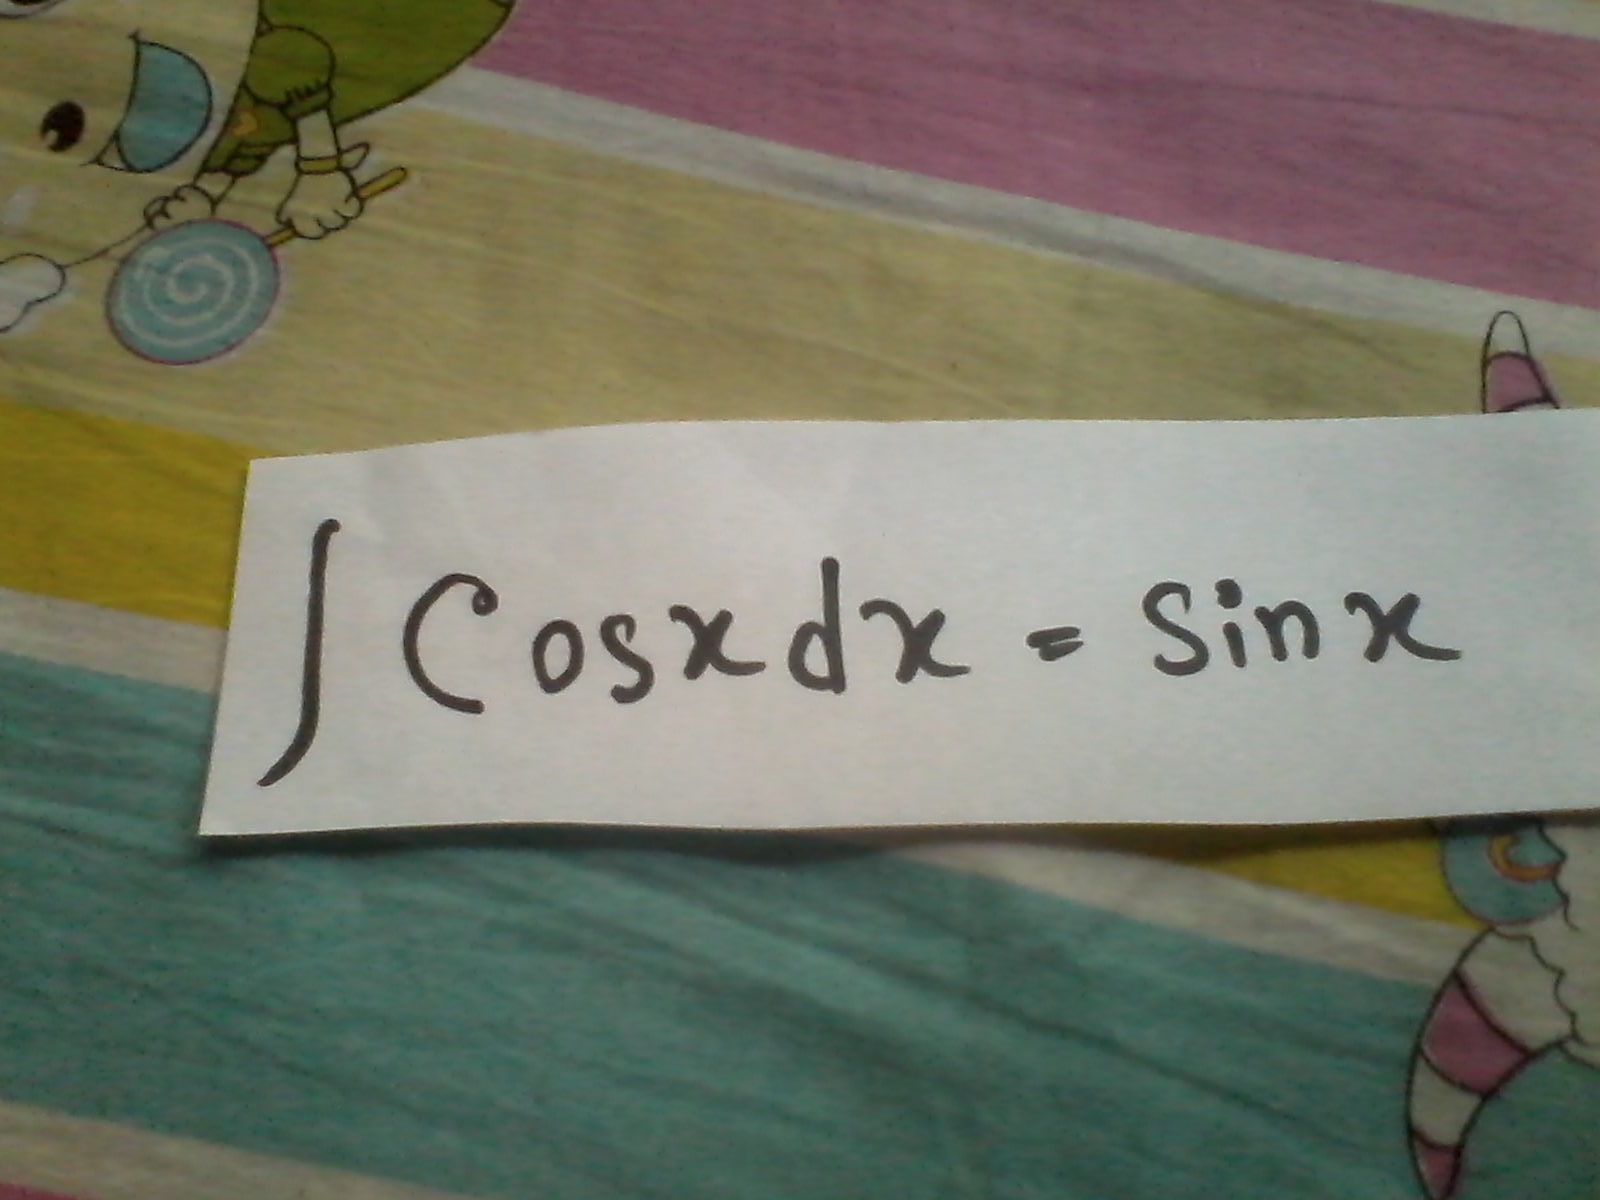 ∫ Cosx dx = Sinx